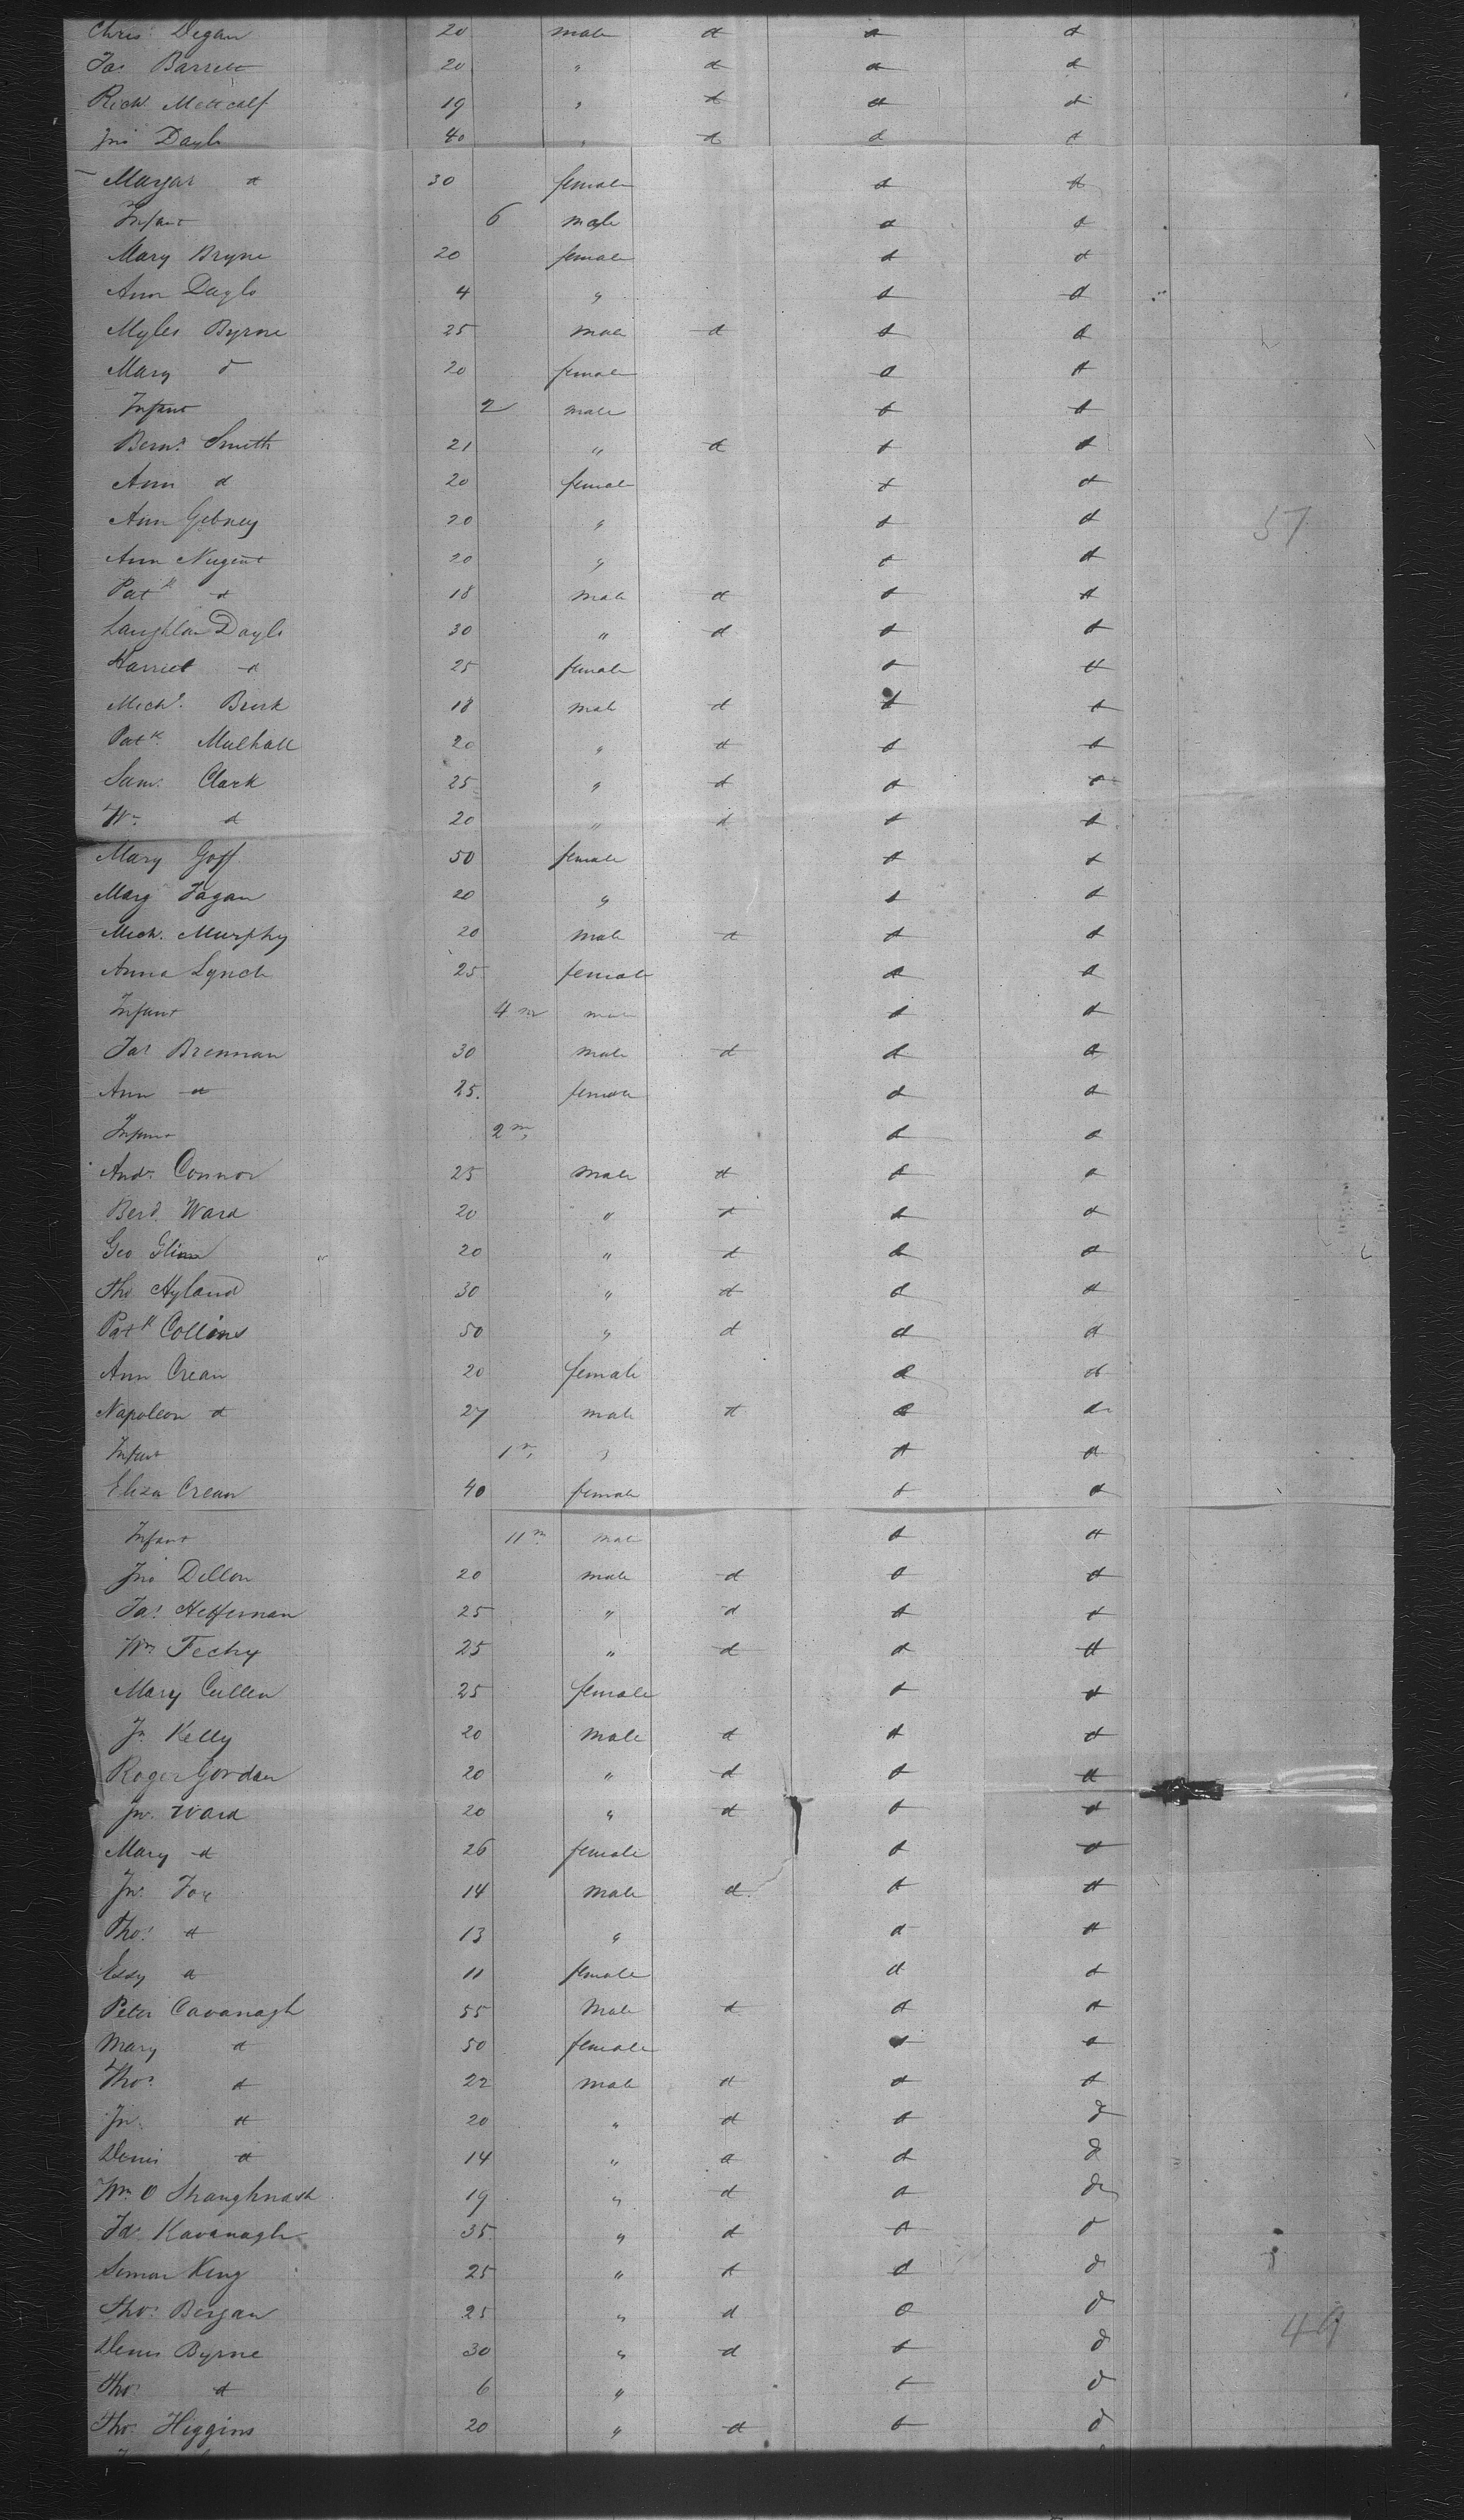 Chris Degan 20 male d d d
Jas Barrett 20 " d d d
Richd Metcalf 19 " d d d
Jno Doyle 40 " d d d
Margar d 30 female d d
Infant 6 male d d
Mary Bryne 20 female d d
Ann Doyle 4 " d d
Myles Byrne 25 male d d d
Mary d 20 female d d
Infant 2 male d d
Bernd Smith 21 " d d d
Ann d 20 female d d
Ann Gebney 20 " d d
57
Ann Nugent 20 " d d
Patk d 18 male d d d
Laughlan Doyle 30 " d d d
Harriet d 25 female d d
Michl Burk 18 male d d d
Patk Mulhall 20 " d d d
Sam Clark 25 " d d d
Wm d 20 " d d d
Mary Goff 50 female d d
Marg Fagan 20 " d d
Mich. Murphy 20 male d d d
Anna Lynch 25 female d d
Infant 4 m male d d
Jas Brennan 30 male d d d
Ann d 25. female d d
Infant 2 m d d
Andw Connor 25 male d d d
Berd Ward 20 " d d d
Geo 20 " d d d
Tho Hyland 30 " d d d
Patk Collins 50 " d d d
Ann Crean 20 female d do
Napoleon d 27 male d d do
Infant 1 m " d d
Eliza Crean 40 female d d
Infant 11 m male d d
Jno Dillon 20 male d d d
Jas Heffernan 25 " d d d
Wm 25 " d d d
Mary Cullen 25 female d d
Jn Kelly 20 male d d d
Roger Gordan 20 " d d d
Jno Ward 20 " d d d
Mary d 26 female d d
Jno Fox 14 male d d d
Thos d 13 " d d
Essy d 11 female d d
Peter Cavanagh 55 Male d d d
Mary d 50 female d d
Thos d 22 male d d d
Jn d 20 " d d d
Denis d 14 " d d d
Wm O Shaughnash 19 " d d do
Jas Kavanagh 35 " d d d
Simon King 25 " d d d
Thos Bergan 25 " d d d
49
Denis Byrne 30 " d d d
Thos d 6 " d d
Thos Higgins 20 " d d d